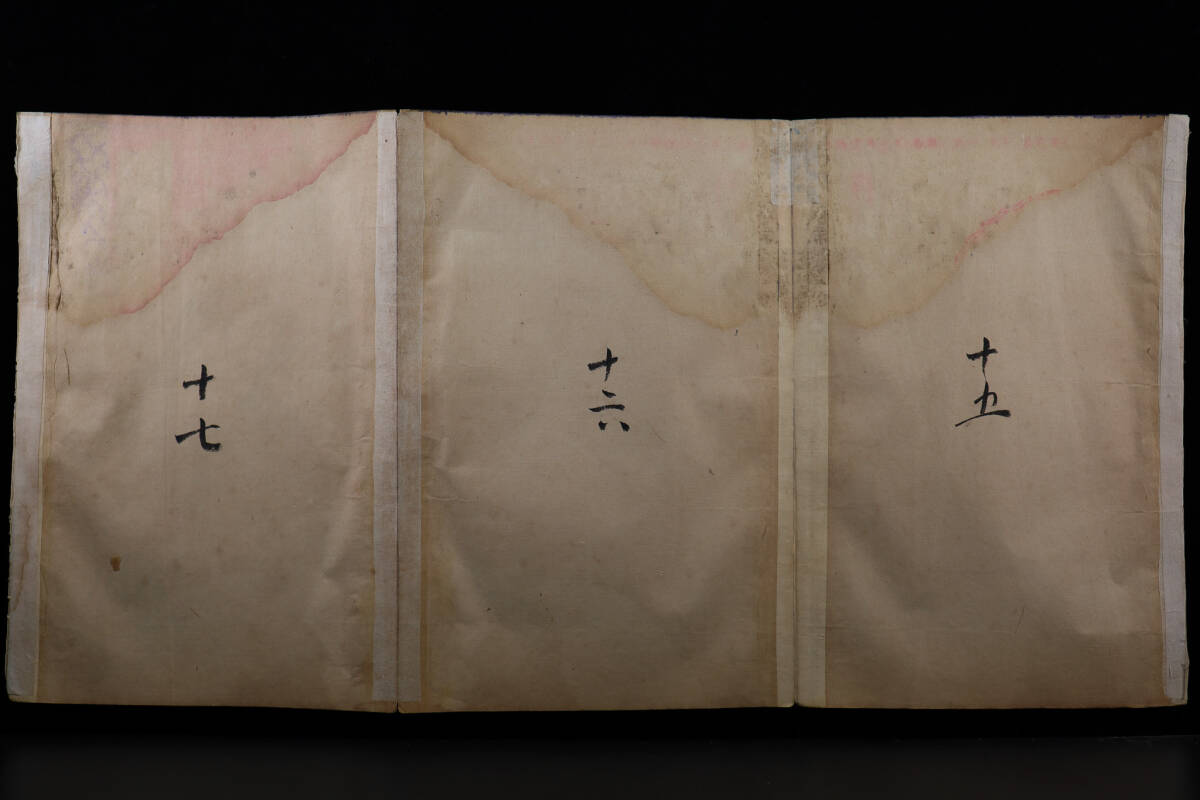 十五
十六
十七